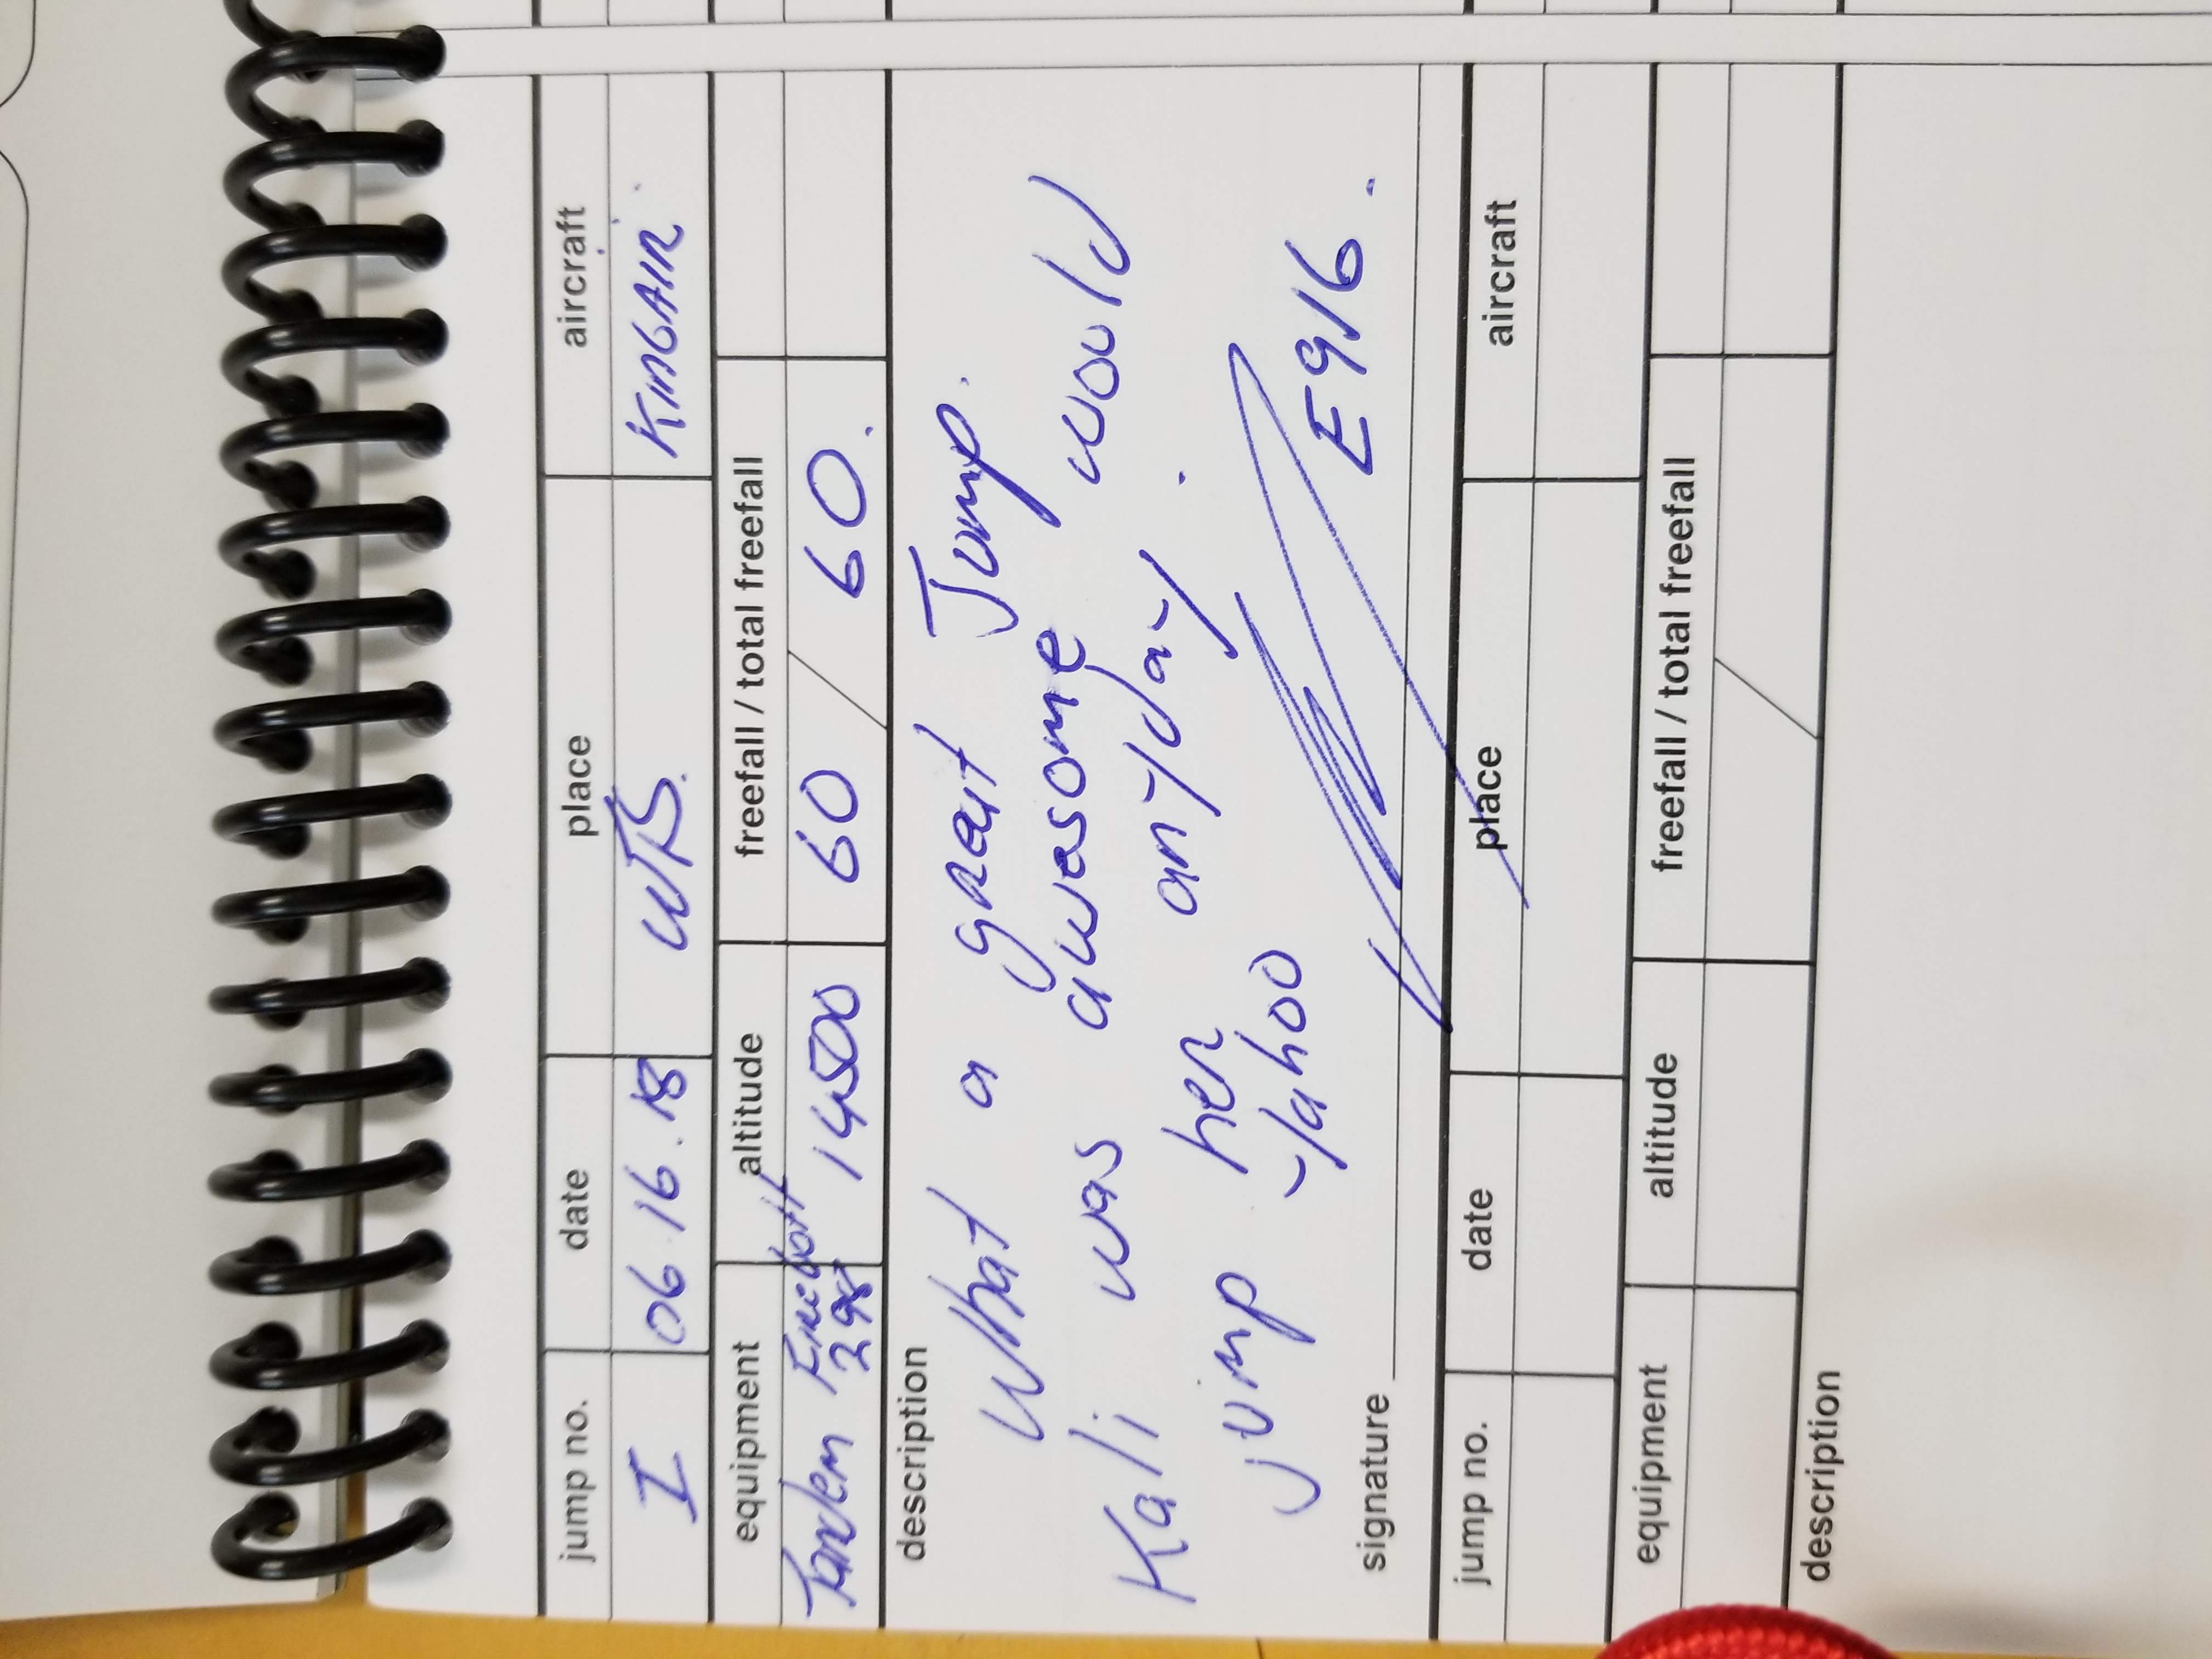 jump no. date place aircraft
I 06.16.18 WTS. KINGAIR.
equipment altitude freefall / total freefall
Tandem Firebolt 14500 60 / 60.
description
What a great Jump.
Kali was awesome would
jump her anyday.
Yahoo
signature E916.
jump no. date place aircraft
equipment altitude freefall / total freefall
/
description